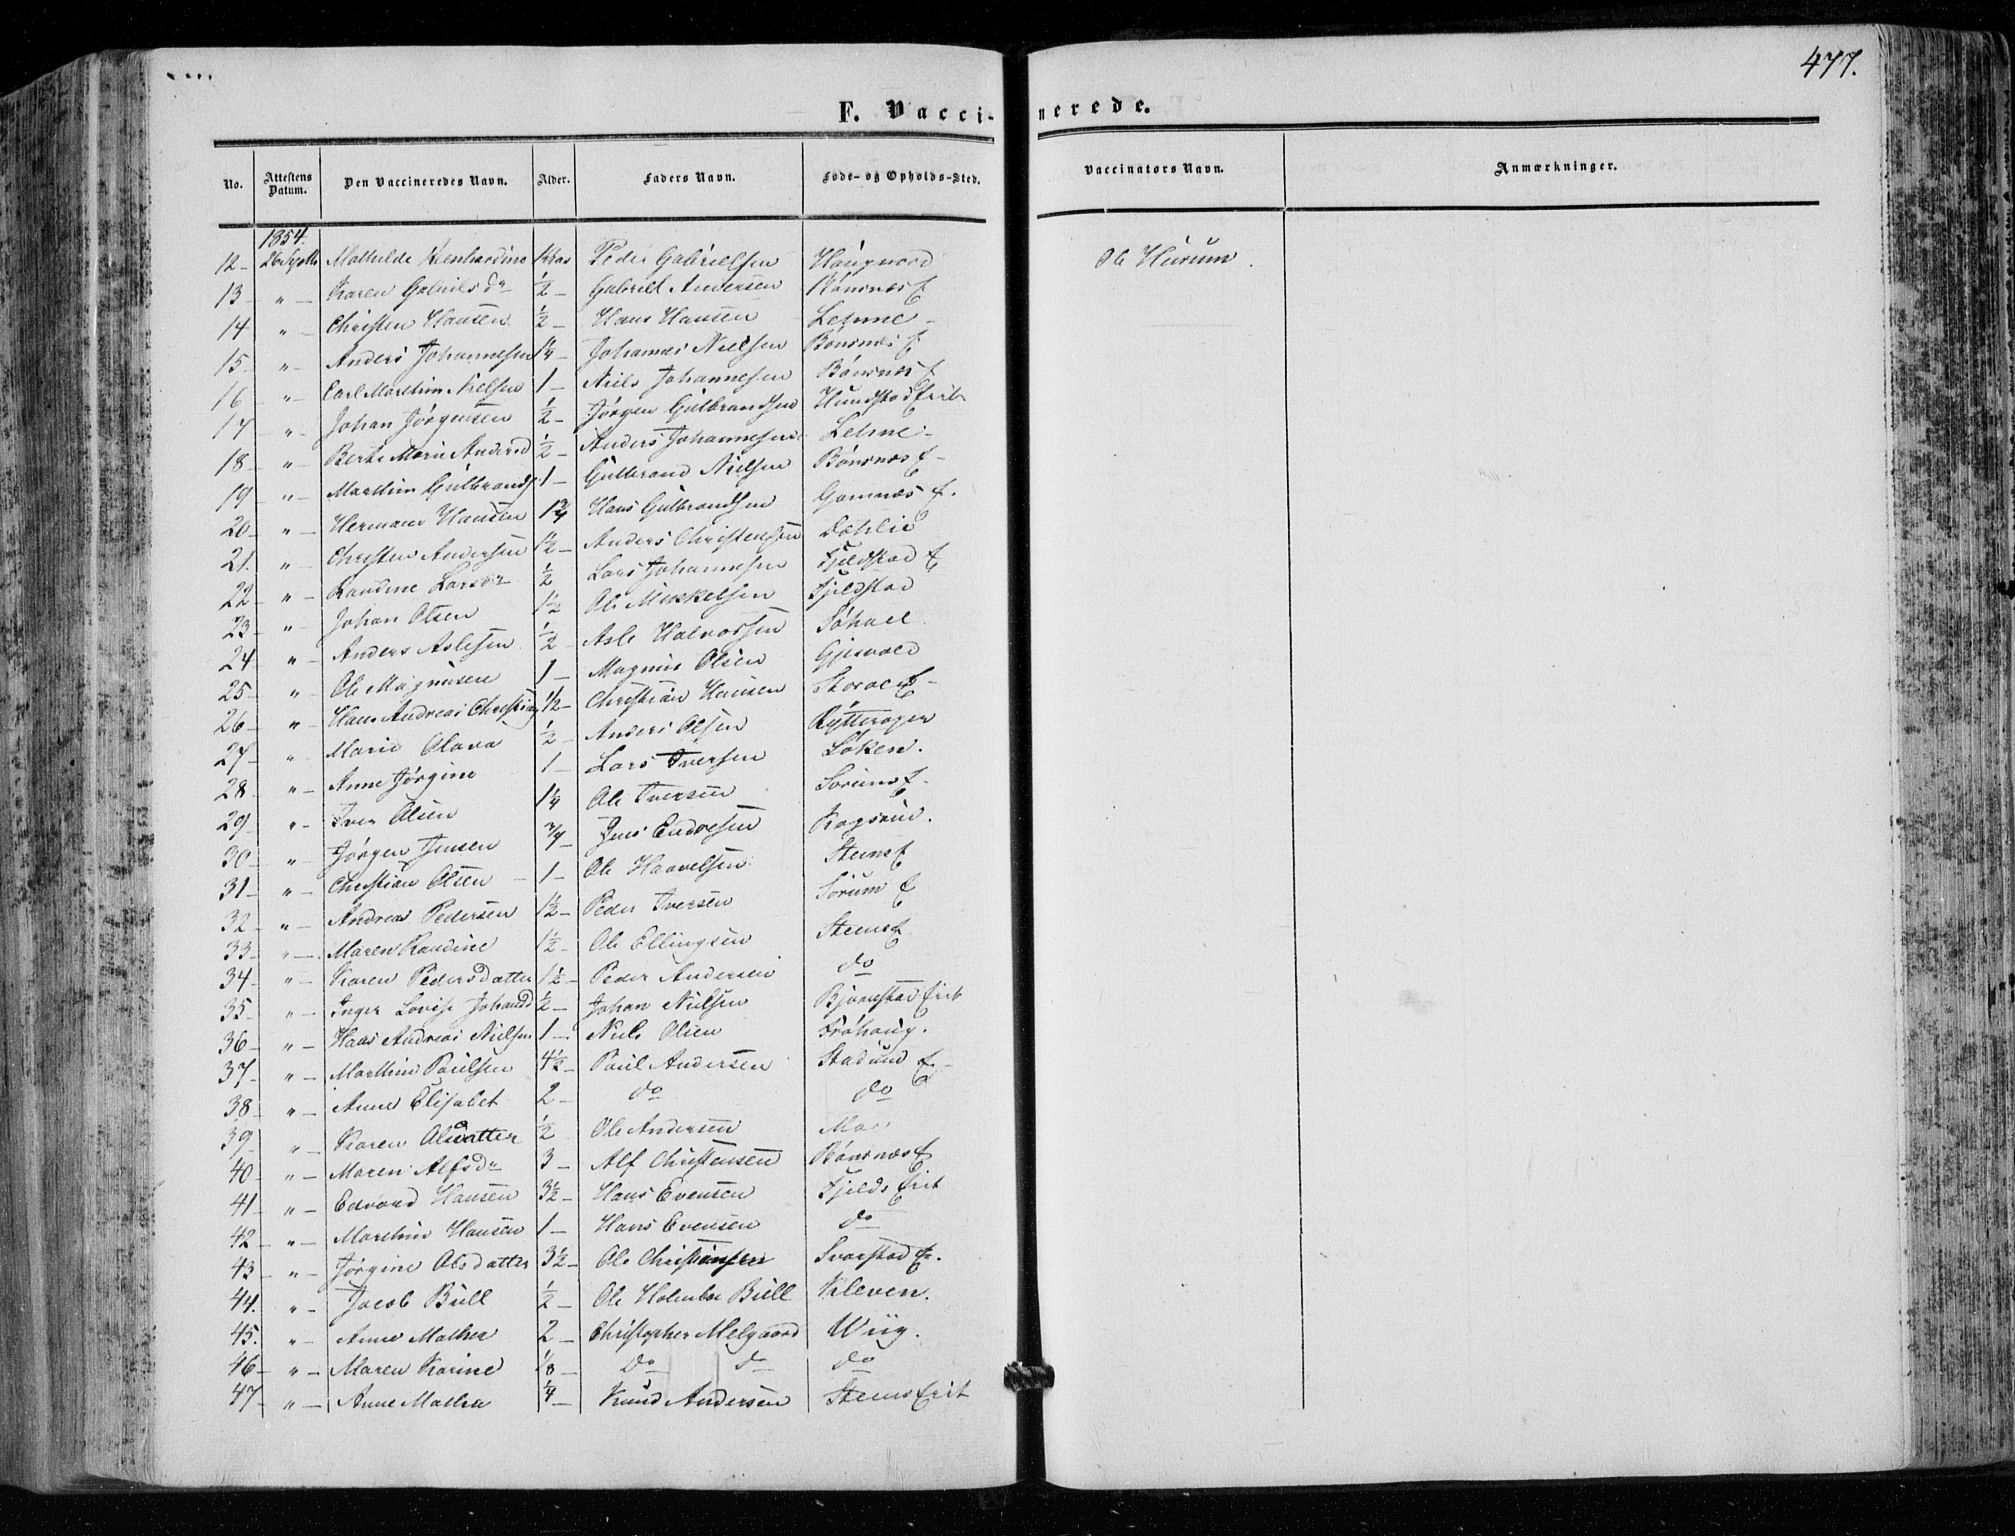 477.
F. Vaccinerede.
No. Attestens Datum. Den Vaccineredes Navn. Alder. Faders Navn. Føde- og Opholds-Sted. Vaccinators Navn. Anmærkninger.
1854.
12 - Mathilde Peder Gabrielsen Haugnord Ole Hurum
13 - " - Karen Gabriels Dr ½ - Gabriel Andersen Bønsnæs E
14 " - Christen Hansen ½ - Hans Hansen Lehne -
15 - " - Anders Johannesen 1¼ - Johannes Nielsen Bønsnæs E
16 - " Carl Marthin Nielsen 1 - Niels Johannesen Bønsnæs E
17 - " Johan Jørgensen ½ - Jørgen Gulbrandsen Hundstad Erik
18 - " - Berthe Marie Andersd ½ - Anders Johannesen Lehne -
19 - " - Marthin Gulbrands 1 - Gulbrand Nielsen Bønsnæs E -
20 - " - Hermann Hansen 1¾ Hans Gulbrandsen Gomnæs E.
21. " Christen Andersen 1½ - Anders Christensen Dæhlie
22 - " - Randine Larsdr ½ Lars Johannesen Fjeldstad E
23 - " Johan Olsen 1½ Ole Mikkelsen Fjeldstad
24 " - Anders Aslesen ½ - Asle Halvorsen Søhoel
25 - " Ole Magnusen 1 - Magnus Olsen Gjesvold
26 - " Hans Andreas Christian 1½ - Christian Hansen Storøe E -
27 - " Marie Olava ½ - Anders Olsen Rytterager
28 - " Anne Jørgine 1 - Lars Iversen Løken.
29 - " - Iver Olsen 1¼ Ole Iversen Sørum E -
30 - " - Jørgen Jensen ¾ - Jens Endresen Rogsrud.
31 - " - Christian Olsen - 1 - Ole Haavelsen Steens E
32 - " - Andreas Pedersen 1½ - Peder Iversen Sørum E
33 - " - Maren Randine 1½ - Ole Ellingsen Steens E
34 - " - Karen Pedersdatter 1½ - Peder Andersen do
35 - " - Inger Lovise Johansd ½ - Johan Nielsen Bjørnstad Erik
36 - " - Hans Andreas Nielsen 1 - Niels Olsen Frøhaug.
37 - " - Marthin Paulsen 4½ - Paul Andersen Stadum E -
38 - " - Anne Elisabet 2 - do do
39 - " - Karen Olsdatter ½ Ole Andersen Moe
40 " - Maren Alfsdr 3 - Alf Christensen Bønsnæs E
41 - " - Edvard Hansen 3½ - Hans Evensen Fjelds Erik
42 - " - Marthin Hansen 1 - Hans Evensen do
43 - " - Jørgine Olsdatter 3½ - Ole Christiansen Svarstad E.
44. " - Jacob Bull ½ - Ole Holmboe Bull Kleven.
45. " - Anne Mathea 2 - Christopher Melgaard Wiig.
46 - " - Maren Karine ⅛ - do do do
47 - " - Anne Mathea ¼ - Knud Andersen Steens Erik